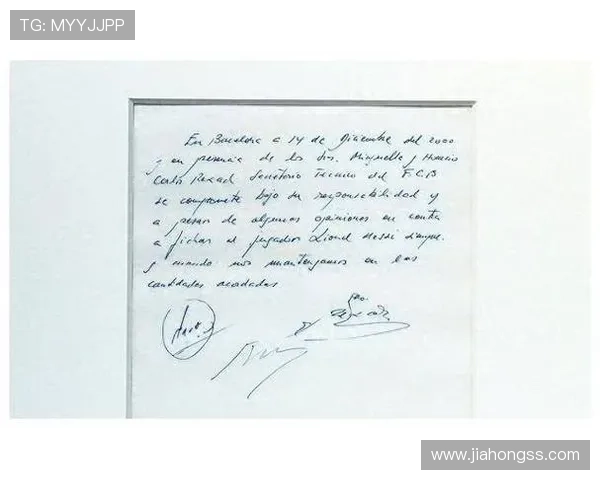 TG: MYYJJPP
En Barcelona a 14 de Diciembre del 2000
y en presencia de los Srs. Minguella y Horacio
Carlos Rexach Secretario Tecnico del F.C.B
se compromete bajo su responsabilidad y
a pesar de algunas opiniones en contra
a fichar al jugador Lionel Messi siempre
y cuando nos mantengamos en las
cantidades acordadas
www.jiahongss.com